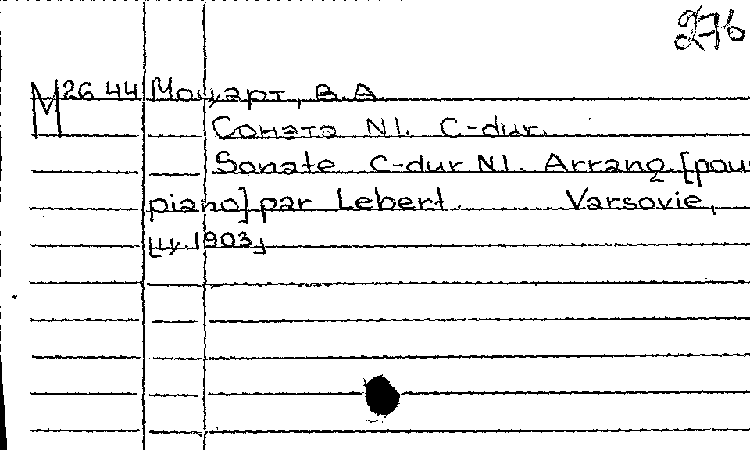 276
М 26 44 Моцарт, В.А.
Соната N1. C-dur.
Sonate C-dur N1. Arrang [pour
piano] par Lebert. Varsovie,
[ц. 1903]